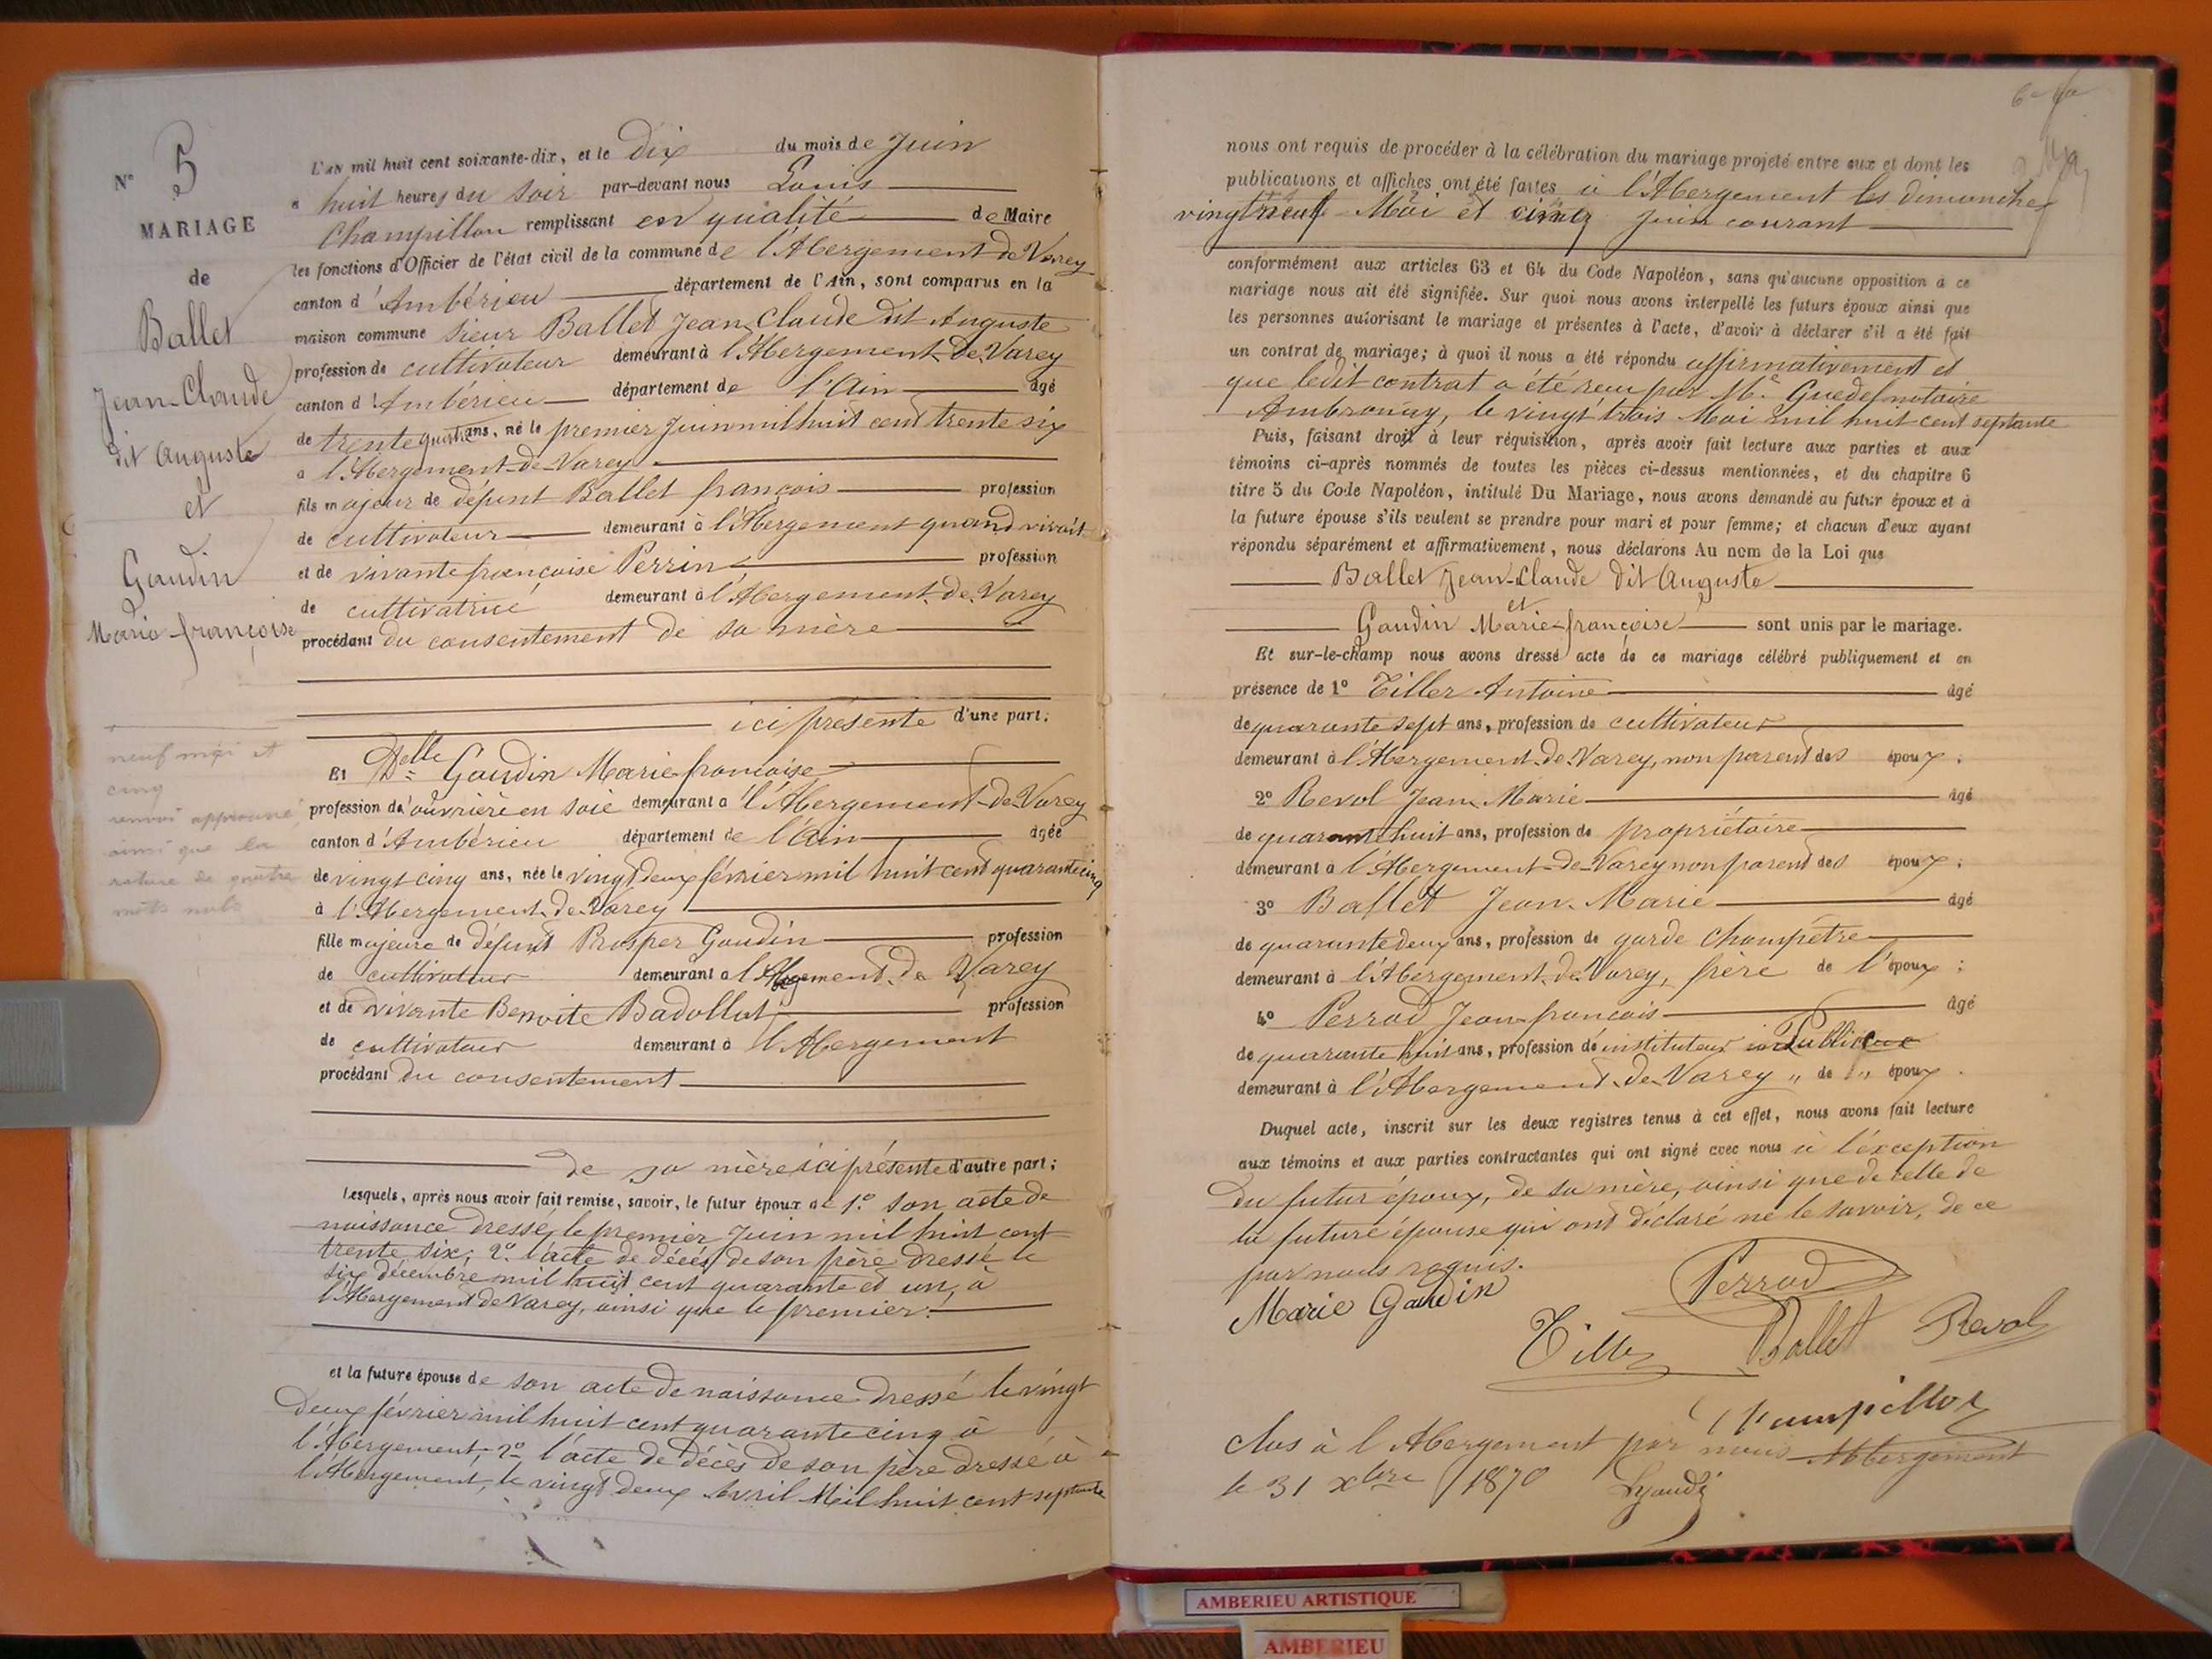 N° 5
MARIAGE
de
Ballet
Jean-Claude
dit Auguste
et
Gaudin
Marie-françoise
neuf mai et
cinq
renvoi approuvé
ainsi que la
rature de quatre
mots nuls
L'AN mil huit cent soixante-dix, et le Dix du mois de Juin
à huit heures du soir par-devant nous Louis
Champillon remplissant en qualité de Maire
les fonctions d'Officier de l'état civil de la commune de l'Abergement-de-Varey
canton d'Ambérieu département de l'Ain, sont comparus en la
maison commune sieur Ballet Jean Claude dit Auguste
profession de cultivateur demeurant à l'Abergement-de-Varey
canton d'Ambérieu département de l'Ain âgé
de trente quatre ans, né le premier Juin mil huit cent trente six
à l'Abergement-de-Varey
fils majeur de défunt Ballet françois profession
de cultivateur demeurant à l'Abergement quand vivait
et de vivante françoise Perrin profession
de cultivatrice demeurant à l'Abergement-de-Varey
procédant du consentement de sa mère
ici présente d'une part;
Et Delle Gaudin Marie françoise
profession d'ouvrière en soie demeurant à l'Abergement-de-Varey
canton d'Ambérieu département de l'Ain âgée
de vingt cinq ans, née le vingt deux février mil huit cent quarante cinq
à l'Abergement-de-Varey
fille majeure de défunt Prosper Gaudin profession
de cultivateur demeurant à l'Abergement-de Varey
et de vivante Benoite Badollat profession
de cultivateur demeurant à l'Abergement
procédant du consentement
de sa mère ici présente d'autre part;
Lesquels, après nous avoir fait remise, savoir, le futur époux de 1° son acte de
naissance dressé le premier Juin mil huit cent
trente six; 2° l'acte de décès de son père dressé le
six décembre mil huit cent quarante et un, à
l'Abergement de Varey, ainsi que le premier.
et la future épouse de son acte de naissance dressé le vingt
deux février mil huit cent quarante cinq à
l'Abergement; 2° l'acte de décès de son père dressé à
l'Abergement, le vingt deux Avril Mil huit cent septante
nous ont requis de procéder à la célébration du mariage projeté entre eux et dont les
publications et affiches ont été faites à l'Abergement les dimanches
vingt neuf Mai et cinq Juin courant
conformément aux articles 63 et 64 du Code Napoléon, sans qu'aucune opposition à ce
mariage nous ait été signifiée. Sur quoi nous avons interpellé les futurs époux ainsi que
les personnes autorisant le mariage et présentes à l'acte, d'avoir à déclarer s'il a été fait
un contrat de mariage; à quoi il nous a été répondu affirmativement et
que ledit contrat a été reçu par Me. Guedel notaire
Ambronay, le vingt trois Mai mil huit cent septante
Puis, faisant droit à leur réquisition, après avoir fait lecture aux parties et aux
témoins ci-après nommés de toutes les pièces ci-dessus mentionnées, et du chapitre 6
titre 5 du Code Napoléon, intitulé Du Mariage, nous avons demandé au futur époux et à
la future épouse s'ils veulent se prendre pour mari et pour femme; et chacun d'eux ayant
répondu séparément et affirmativement, nous déclarons Au nom de la Loi que
Ballet Jean-Claude dit Auguste
et
Gaudin Marie-françoise sont unis par le mariage.
Et sur-le-champ nous avons dressé acte de ce mariage célébré publiquement et en
présence de 1° Tiller Antoine âgé
de quarante sept ans, profession de cultivateur
demeurant à l'Abergement-de-Varey, non parent des époux;
2° Revol Jean Marie âgé
de quarante huit ans, profession de propriétaire
demeurant à l'Abergement-de-Varey non parent des époux;
3° Ballet Jean-Marie âgé
de quarante deux ans, profession de garde champêtre
demeurant à l'Abergement-de-Varey, frère de l'époux;
4° Perrod Jean-françois âgé
de quarante huit ans, profession d'instituteur Public
demeurant à l'Abergement-de-Varey " de " époux.
Duquel acte, inscrit sur les deux registres tenus à cet effet, nous avons fait lecture
aux témoins et aux parties contractantes qui ont signé avec nous à l'éxception
du futur époux, de sa mère, ainsi que de celle de
la future épouse qui ont déclaré ne le savoir, de ce
par nous requis.
Marie Gaudin Perrod
Tiller Ballet Revol
Champillon
Clos à l'Abergement par nous Abergement
le 31 Xbre 1870
AMBERIEU ARTISTIQUE
AMBERIEU